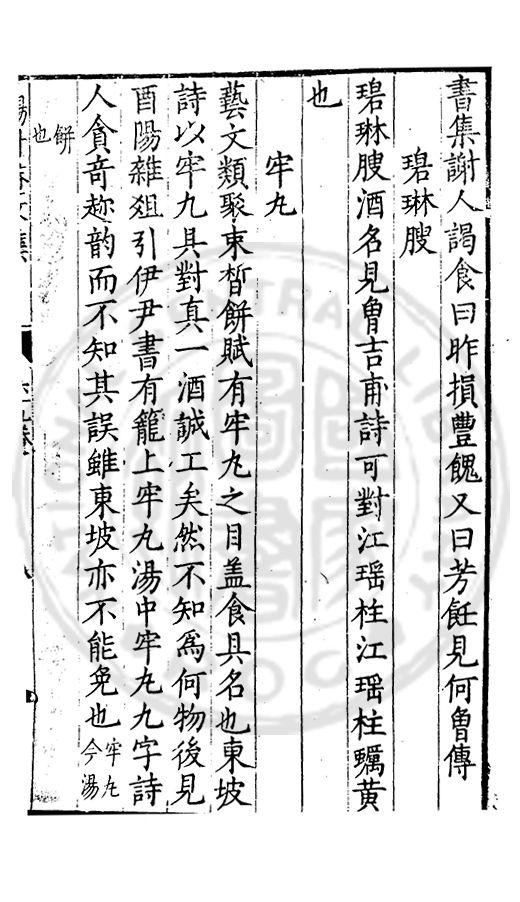 書集謝人謁食曰昨損豐餽又曰芳飪見何曾傳
碧琳腴
碧琳腴酒名見曾吉甫詩可對江瑶柱江瑶柱蠣黃
也
牢九
藝文類聚束皙餅賦有牢九之目盖食具名也東坡
詩以牢九具對真一酒誠工矣然不知為何物後見
酉陽雜俎引伊尹書有籠上牢丸湯中牢丸九字詩
人貪奇趂韵而不知其誤雖東坡亦不能免也牢丸今湯
餅也